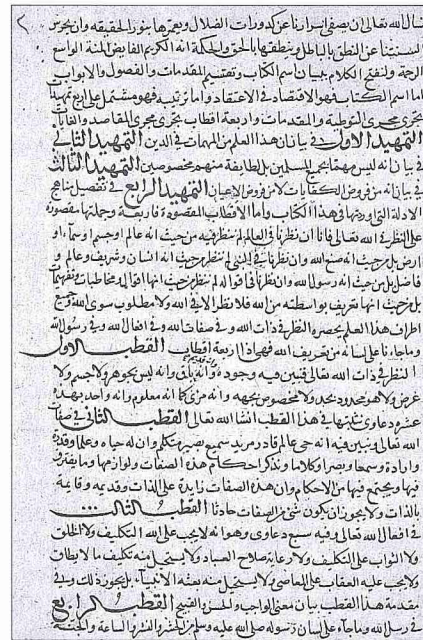 نسأل الله تعالى ان يصفي اسرارنا عن كدورات الضلال ويعمرها بنور الحقيقه وان يخرس
السنتنا عن النطق بالباطل وينطقها بالحق والحكمة انه الكريم الفايض المنة الواسع
الرحمة ولنفتح الكلام ببيان اسم الكتاب وتقسيم المقدمات والفصول والابواب
اما اسم الكتاب فهو الاقتصاد في الاعتقاد واما ترتيبه فهو مشتمل على اربع تمهيدات
تجري مجرى التوطية والمقدمات واربعة اقطاب تجري مجرى المقاصد والغايات
التمهيد الاول في بيان ان هذا العلم من المهمات في الدين التمهيد الثاني
في بيان انه ليس مهما لجميع المسلمين بل لطايفة منهم مخصوصين التمهيد الثالث
في بيان انه من فروض الكفايات لا من فروض الاعيان التمهيد الرابع في تفصيل مناهج
الادلة التي اوردتها في هذا الكتاب واما الاقطاب المقصودة فاربعة وجملتها مقصورة
على النظر في الله تعالى فانا ان نظرنا في العالم لم ننظر فيه من حيث انه عالم او جسم او سما او
ارض بل من حيث انه صنع الله وان نظرنا في النبي لم ننظر من حيث انه انسان وشريف وعالم و
فاضل بل من حيث انه رسول الله وان نظرنا في اقواله لم ننظر من حيث انها اقوال ومخاطبات وتفهيمات
بل من حيث انها تعريف بواسطته من الله فلا نظر الا في الله ولا مطلوب سوى الله وجميع
اطراف هذا العلم يحصره النظر في ذات الله وفي صفات الله وفي افعال الله وفي رسول الله
وما جاءنا على لسانه من تعريف الله فهي اذا اربعة اقطاب القطب الاول
النظر في ذات الله تعالى فنبين فيه وجوده وانه باق وانه ليس بجوهر ولا جسم ولا
عرض ولا هو محدود بحد ولا مخصوص بجهه وانه مرئي كما انه معلوم وانه واحد فهذه
عشره دعاوى نثبتها في هذا القطب ان شا الله تعالى القطب الثاني في صفات
الله تعالى ونبين فيه انه حي عالم قادر مريد سميع بصير متكلم وان له حياه وعلما وقدرة
وارادة وسمعا وبصرا وكلاما ونذكر احكام هذه الصفات ولوازمها وما يفترق
فيها ويجتمع فيها من الاحكام وان هذه الصفات زايدة على الذات وقديمه وقايمة
بالذات ولا يجوز ان يكون شي من الصفات حادثا القطب الثالث
في افعال الله تعالى وفيه سبع دعاوى وهو انه لا يجب على الله التكليف ولا الخلق
ولا الثواب على التكليف ولا رعاية صلاح العباد ولا يستحيل منه تكليف ما لا يطاق
ولا يجب عليه العقاب على المعاصي ولا يستحيل منه بعثة الانبياء بل يجوز ذلك وفي
مقدمة هذا القطب بيان معنى الواجب والحسن والقبيح القطب الرابع
في رسل الله وما جاء على لسان رسوله صلى الله عليه وسلم من الحشر والنشر والساعة والجنة